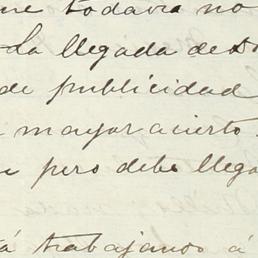 ue todavia no
La llegada de D
de publicidad
mayor acierto.
pero debe llega
á trabajando á